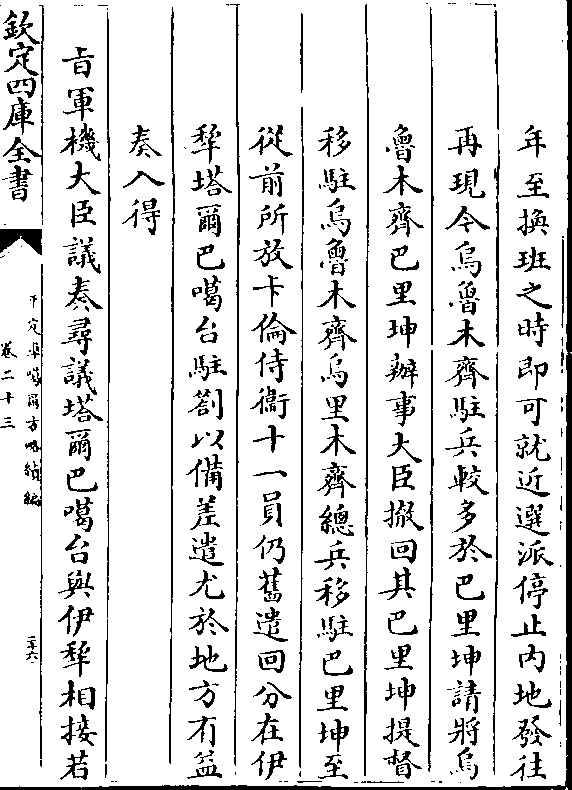 年至換班之時即可就近選派停止内地發往
再現今烏魯木齊駐兵較多於巴里坤請將烏
魯木齊巴里坤辦事大臣撤回其巴里坤提督
移駐烏魯木齊烏里木齊總兵移駐巴里坤至
從前所放卡倫侍衞十一員仍舊遣回分在伊
犂塔爾巴噶台駐劄以備差遣尤於地方有益
奏入得
旨軍機大臣議奏尋議塔爾巴噶台與伊犂相接若
欽定四庫全書
平定準噶爾方略續編
卷二十三
二十六